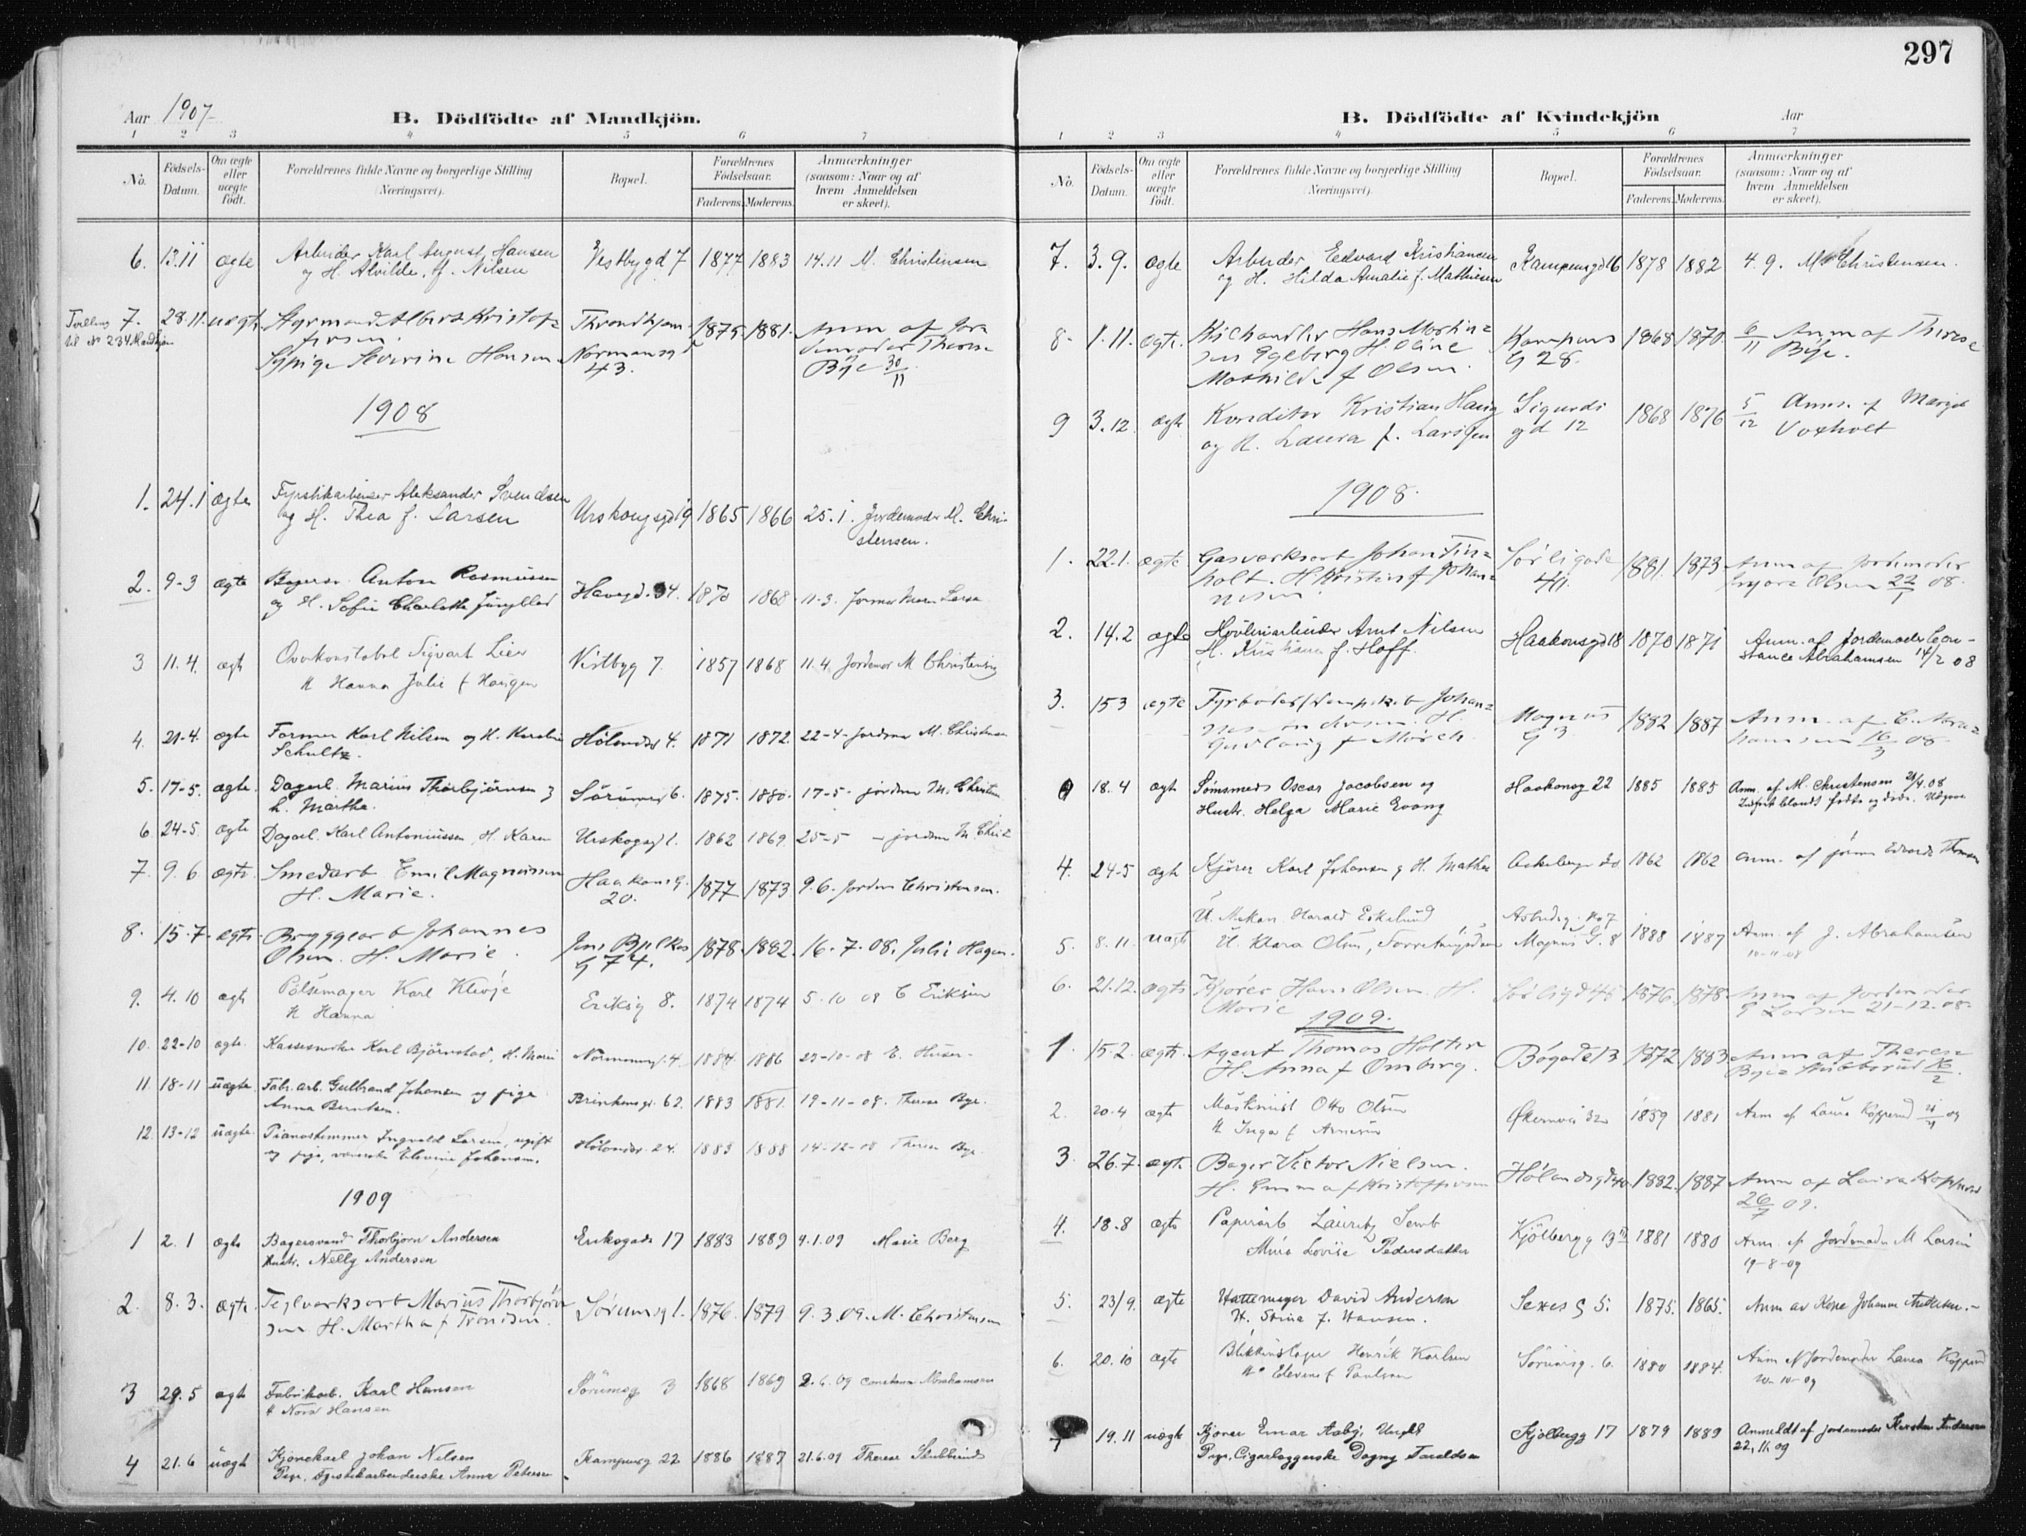 297
Aar 1907
B. Dödfödte af Mandkjön.
1 2 3 4 5 6 7
No.
Födsels-Datum.
Om ægte eller uægte födt.
Forældrenes fulde Navne og borgerlige Stilling
(Næringsvei).
Bopæl.
Forældrenes Födselsaar.
Faderens. Moderens.
Anmærkninger
(saasom: Naar og af
hvem Anmeldelsen
er skeet).
6. 13.11 ægte Arbeider Karl August Hansen Vestbygd 7 1877 1883 14.11 M. Christensen
og H. Alvilde, f. Nilsen
7. 28.11 uægte Albert Kristof- Throndhjem- 1875 1881 Anm af Jor-
fersen demoder Therese
Pige Severine Hansen Normansgd 43. Bye 30/11
1908
1. 24.1 ægte Fyrstikarbeider Aleksander Svendsen Urskougsgd 19 1865 1866 25.1. Jordemoder M. Chri-
og H. Thea f. Larsen stensen.
2. 9-3 ægte Anton Rasmussen Havsgd. 34. 1870 1868 11-3.
og H. Sofie Charlotte
3 11.4. ægte Overkonstabel Sigvart Lier Vestbyg 7. 1857 1868 11.4. Jordemor M Christensen
H Hanna Julie f Haugen
4. 21-4. ægte Former Karl Nilsen og H. Karoline Hølandsg 4. 1871 1872. 22-4- Jordem M. Christensen
Schultz.
5. 17-5. ægte. Dagarb. Marius Thorbjörnsen og Sörumsg 6. 1875. 1880. 17-5- jordem M. Christen
h. Martha.
6. 24-5. ægte Dagarb. Karl Antoniussen, H. Karen Urskogsgd 1. 1862 1869. 25-5 - jordem M. Christ
7. 9.6 ægte. Smedarb Emil Magnussen Haakonsg. 20. 1877 1873 9.6. Jordem Christensen.
H. Marie.
8. 15-7. ægte. Bryggearb Johannes Jens Bjelkes G 74. 1878. 1882. 16-7-08. Julie Hagen.
Olsen. H. Marie.
9. 4.10 ægte Pölsemager Karl Eriksg 8. 1874 1874 5.10 08 C Eriksen
H Hanna
10. 22-10 ægte. Karl Björnstad, H. Marie Normannsg. 4. 1884 1886 22-10-08 E. Huser
11. 18-11 uægte. Fabr. arb. Gulbrand Johansen og pige Brinkensgt. 62. 1883 1881. 19-11-08. Therese Bye.
Anna Berntsen.
12. 13-12 uægte Pianostemmer Ingvald Larsen, ugift Hölandsg. 24. 1883 1888 14-12-08 Therese Bye.
og pige, Johansen.
1909
1 2.1 ægte Bagersvend Thorbjørn Andersen Eriksgade 17 1883 1889 4.1.09 Marie Berg
Hustr. Nelly Andersen
2. 8.3. ægte Teglverksarb Marius Thorbjørn- Sørumsg 1. 1876. 1879 9.3.09. M. Christensen
sen H. Martha f Trondsen.
3 29.5 ægte Fabrikarb. Karl Hansen Sörumsg 3 1868 1869 2.6.09 Constance Abrahamsen
H Nora Hansen
4 21.6 uægte Kjørekarl Johan Nelsen Kampensg 22 1886 1887 21.6.09 Therese Stubberud
Pige, Fyrstikarbeiderske Anna Petersen
B. Dödfödte af Kvindekjön
Aar
1 2 3 4 5 6 7
No.
Födsels-Datum.
Om ægte eller uægte födt.
Forældrenes fulde Navne og borgerlige Stilling
(Næringsvei)
Bopæl.
Forældrenes Födselsaar.
Faderens. Moderens.
Anmærkninger
(saasom: Naar og af
hvem Anmeldelsen
er skeet).
7. 3.9. ægte Arbeider Edvard Kristiansen Kampensgd 16 1878 1882 4.9. M Christensen.
og H. Hilda Amalie f. Mathisen
8. 1.11. ægte. Hans Martin- Kampens G 28. 1868 1870. 6/11 Anm af Therese
sen Egeberg H. Oline Bye.
Mathilde f Olsen.
9 3.12. ægte Konditor Kristian Haug Sigurds gd 12 1868 1876 5/12 Anm. af Margit
og H. Laura f. Larssen Voxholt
1908.
1. 22.1. ægte Gasverksarb Johan Fin- Sørligade 41. 1881. 1873 Anm af Jordemoder
holt. H Kristine f Johan- Olsen 22/1 08.
nesen.
2. 14.2 ægte Høvleriarbeider Arnt Nilsen Haakonsgd 18 1870 1871 Anm. af Jordemoder Con-
H. Kristiane f. Hoff. stance Abrahamsen 14/2 08
3. 15 3 ægte Fyrbøder Johan- Magnus G 3 1882 1887 Anm. af C. Abra-
nes Andersen. H. hamsen 16/3 08.
Gudlaug f Mørch.
18.4 ægte Sømsmed Oscar Jacobsen og Haakonsg 22 1885 1885 Anm. af M. Christensen 21/4.08
Hustr. Helga Marie Evang
4. 24-5 ægte Kjører Karl Johansen og H. Mathea 1862 1862 Anm. af
5. 8.11. uægte U. Mekan. Harald Eskelund 1888 1887 Anm. af J. Abrahamsen
U. Klara Olsen, Magnus G. 8 10-11-08
6. 21.12. ægte Kjører Hans Olsen. H. Sørligd 45 1876. 1878 Anm af Jordemoder
Marie G Larsen 21-12-08.
1909.
1. 15.2. ægte. Agent Thomas Holter Bögade 13 1872 1883 Anm af Therese
H. Anna f Omberg. Bye Stubberud 16/2.
2. 20.4 ægte Maskinist Otto Olsen Økernvei 32 1859 1881 Anm af Laura Kopperud
H Inga f Arnesen
3. 26.7. ægte. Bager Victor Nielsen. Hølandsgd 40. 1882. 1887 Anm af Laura Kopperud
H. Emma f Kristoffersen 26/7 09.
4. 18.8 ægte Papirarb Lauritz Semb Kjölbergg 13 1881 1880 Anm. af Jordemoder M Larsen
Mina Lovise Pedersdatter 19-8-09
5. 23/9. ægte Hattemager David Andersen Saxes G 5. 1875. 1865. Anm av Kone Johanne Andersen.
H. Stina f. Hansen.
6. 20.10 ægte Blikkenslager Henrik Karlsen Sörumsg. 6. 1880 1884. Anm Jordemoder Laura Kopperud
H. Elevine f Paulsen
7 19.11 uægte Kjører Einar Aaby, Ungk Kjølbergg 17 1879 1889 Anmeldt af jordemoder Karoline Andersen
Pige, Cigarlæggerske Dagny Taraldsen 22.11.09